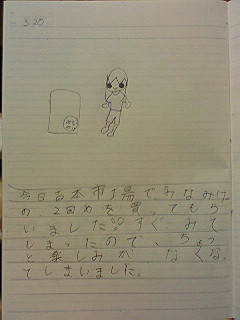 3.20
今日古本市場でみなみけ
の、2回めを買ってもら
いました。すぐ、みて
しまったので、ちょっ
と楽しみが、なくなっ
てしまいました。